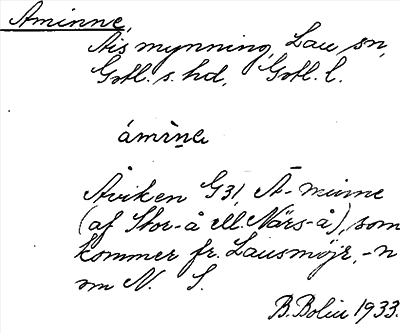 Aminne,
Ais mynning, Lau sn,
Gotl. s. hd, Gotl. l.
áminε
Åviken G31, Å-minne
(af Stor-å ell. Närs-å), som
kommer fr. Lausmyr, -n
om N. S.
B. Bolin 1933.